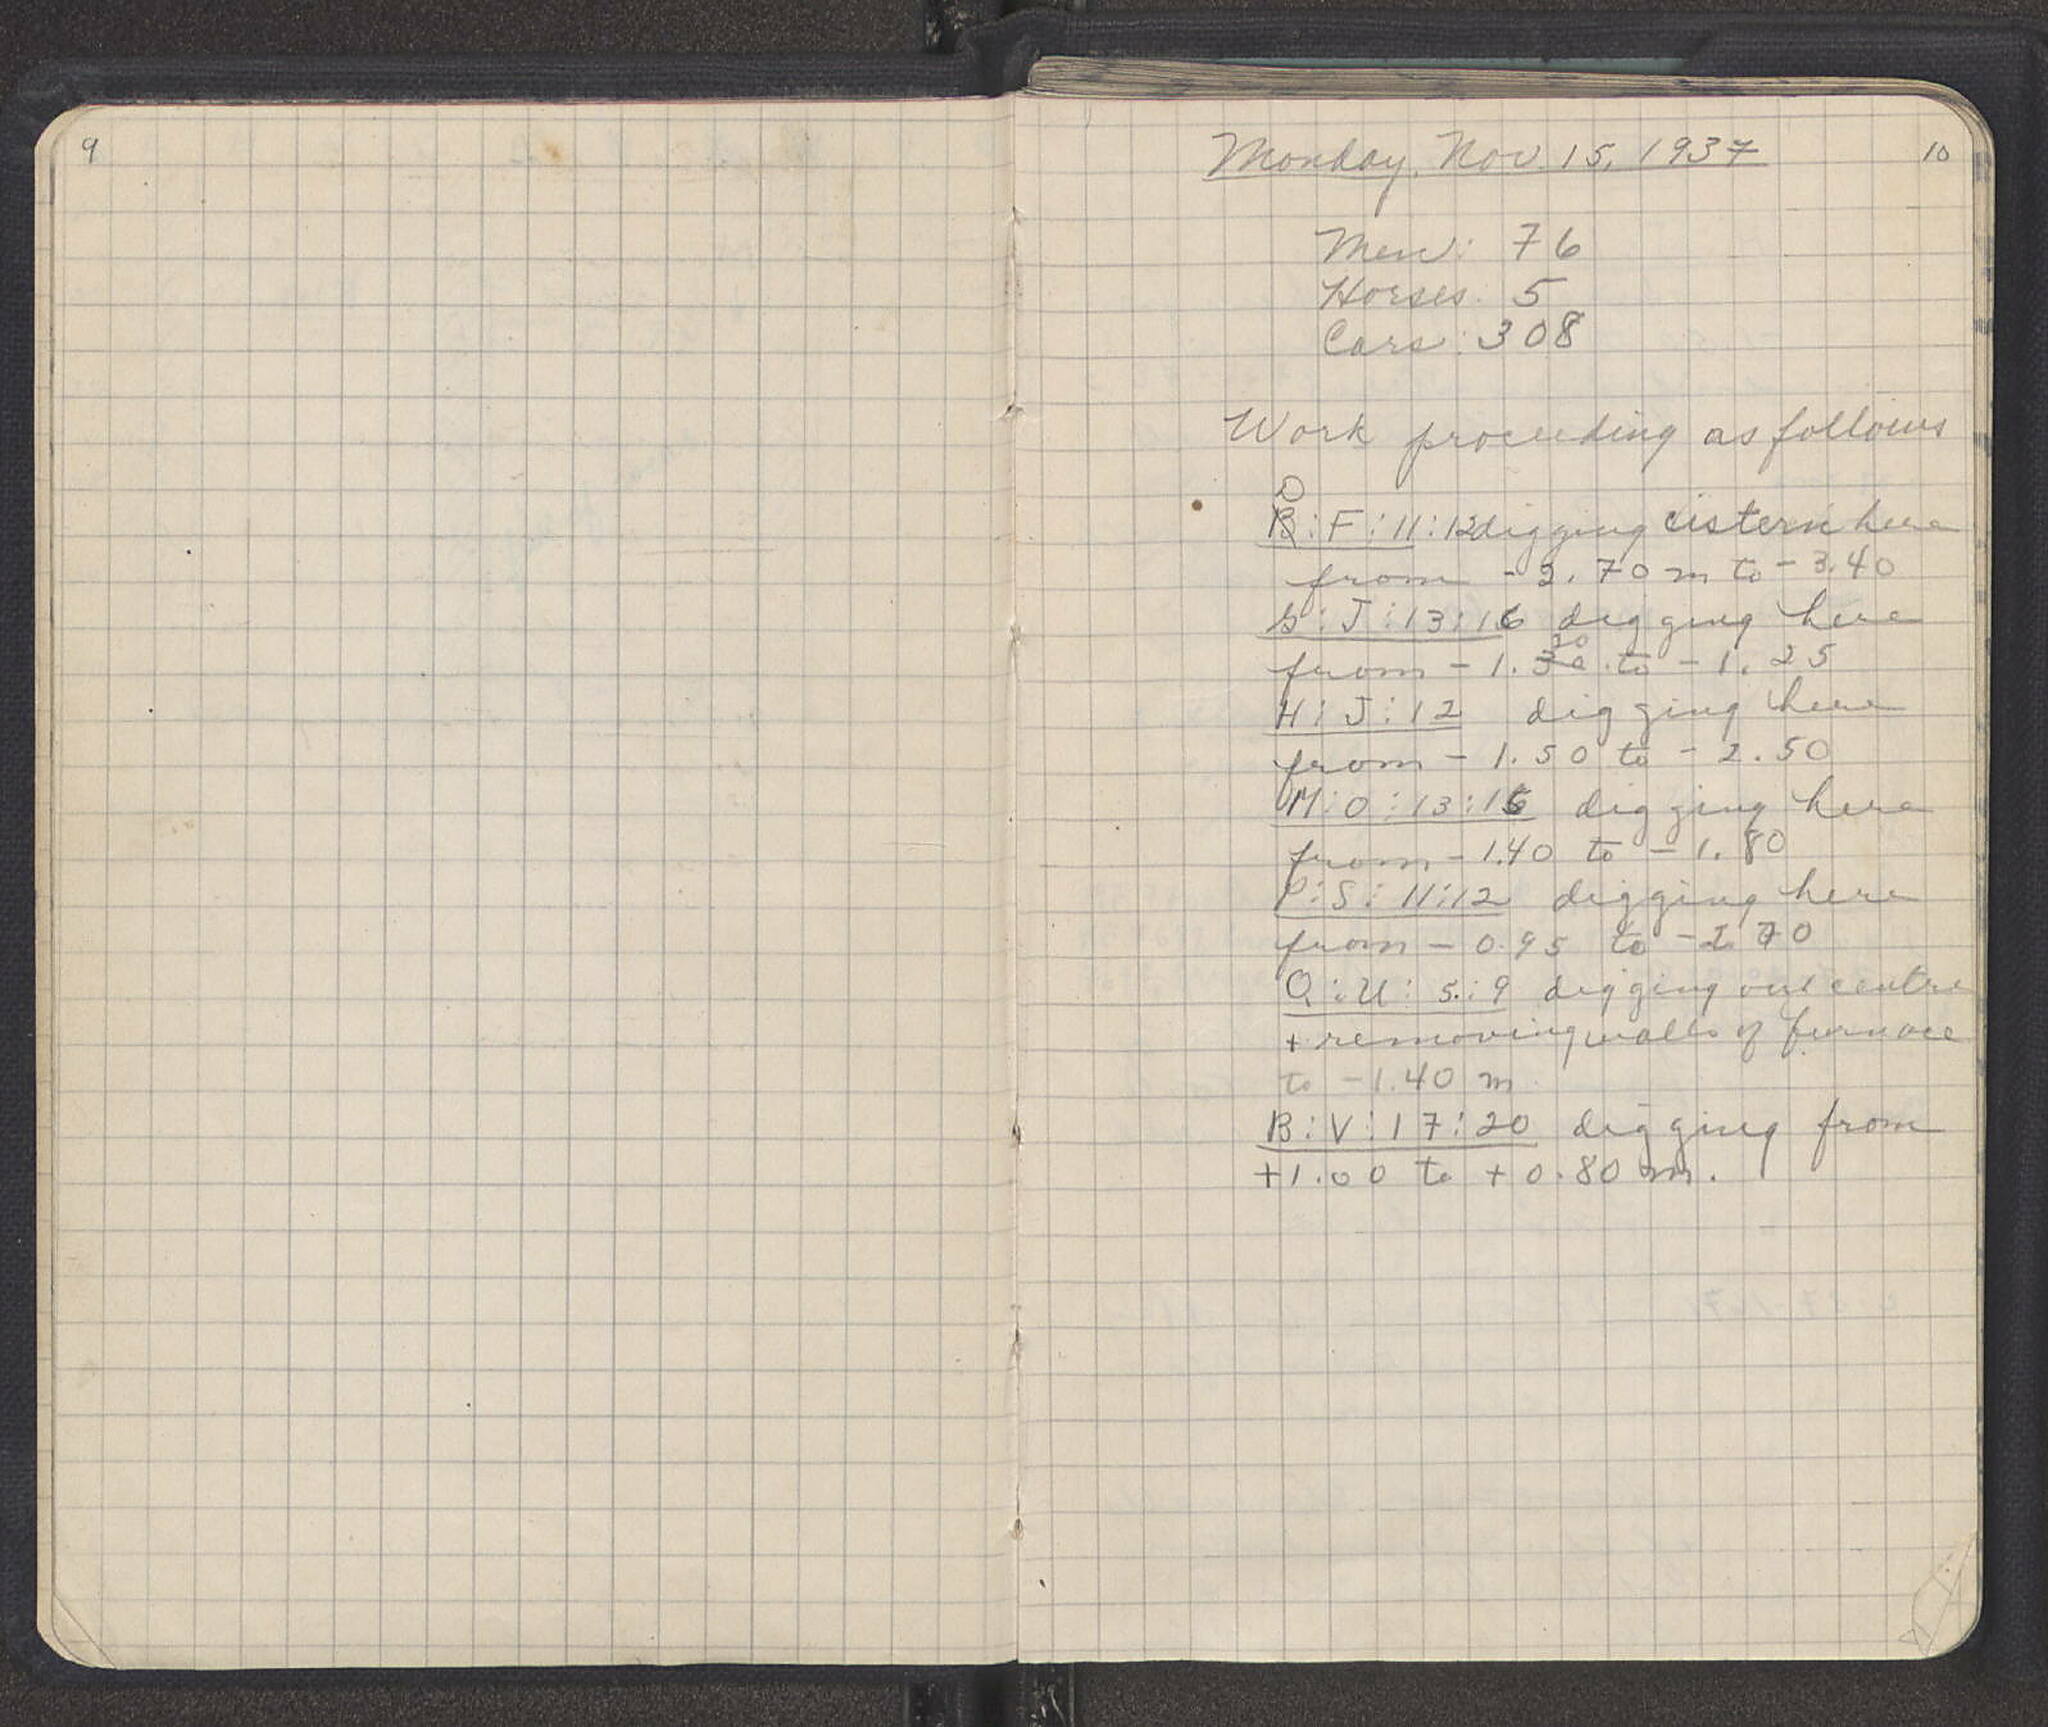 9
10
Monday, Nov. 15, 1937
Men: 76
Horses: 5
Cars: 308
Work proceeding as follows
D
B:F:11:12 digging cistern here
from -2.70 m to -3.40
G:J:13:16 digging here
20
from -1.30 to -1.25
H:J:12 digging here
from -1.50 to -2.50
M:O:13:16 digging here
from -1.40 to -1.80
P:S:11:12 digging here
from -0.95 to -2.70
Q:U:5:9 digging out centre
+ removing walls of furnace
to -1.40 m
B:V:17:20 digging from
+1.00 to +0.80 m.